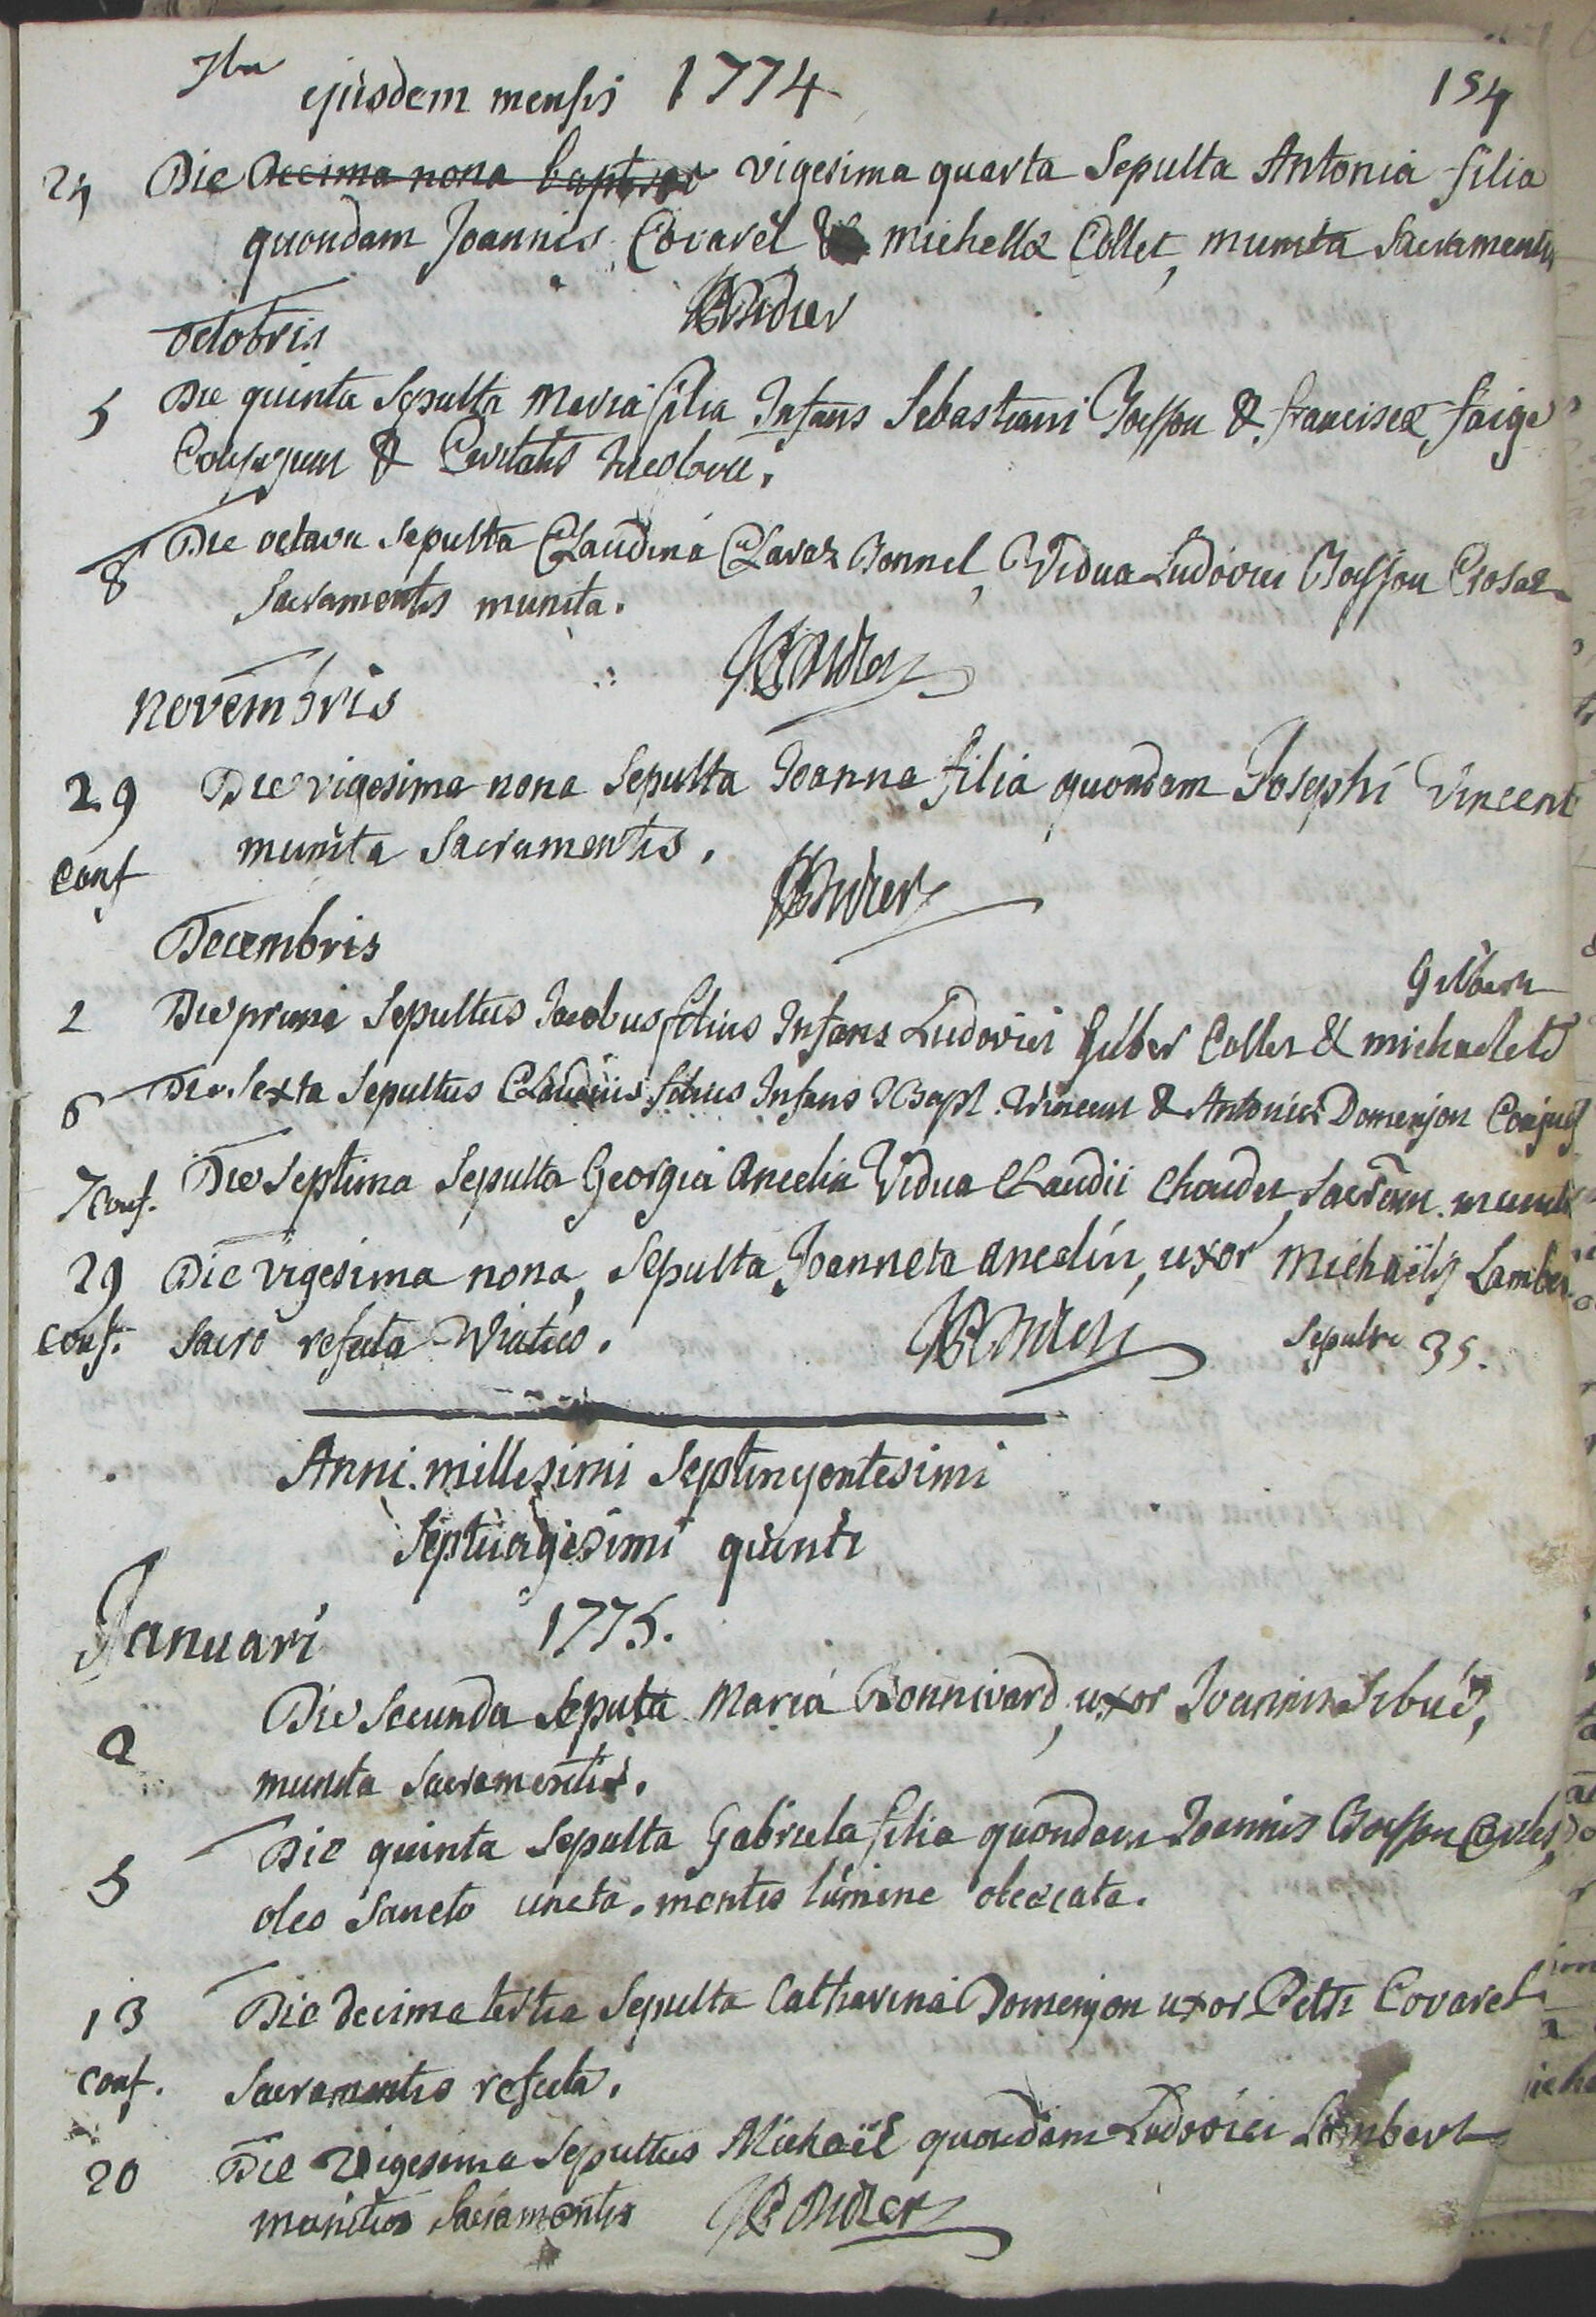 7bris ejusdem mensis 1774 154
24 Die decima nona vigesima quarta Sepulta Antonia filia
quondam Joannis Covarel & michellæ Collet, munita Sacramentis
octobris
5 Die quinta Sepulta Maria filia Infans Sebastiani & franciscæ faige
Conjugum & Civitatis Incolarum.
8 Die octava Sepulta Claudina Claraz Bonnel, Vidua Ludovici Boisson Crosaz
Sacramentis munita.
novembris
29 Die vigesima nona Sepulta Joanna filia quondam Josephi Vincent
conf munita Sacramentis.
Decembris
Gilbert
2 Die prima Sepultus Jacobus filius Infans Ludovici Collet & michaeletæ
6 Die Sexta Sepultus Claudius filius Infans JBapt. Vincent & Antoniæ Domenjon Conjug
7 conf. Die Septima Sepulta Georgia Ancelin Vidua Claudii Sacram. munita
29 Die vigesima nona, Sepulta Joanneta ancelin, uxor Michaëlis Lambert
conf. Sacro refecta Viatico. Sepultæ 35.
Anni millesimi Septingentesimi
Septuagesimi quinti
Januari 1775.
2 Die Secunda Seputa Maria Bonnivard, uxor Joannis
munita Sacramentis.
5 Die quinta Sepulta Gabriela filia quondam Joannis Boisson
oleo Sancto uncta. mentis lumine obcæcata.
13 Die decima tertia Sepulta Catharina Domenjon uxor Petri Covarel
conf. Sacramentis refecta.
20 Die Vigesima Sepultus Michaël quondam Ludovici Lambert
munitus Sacramentis